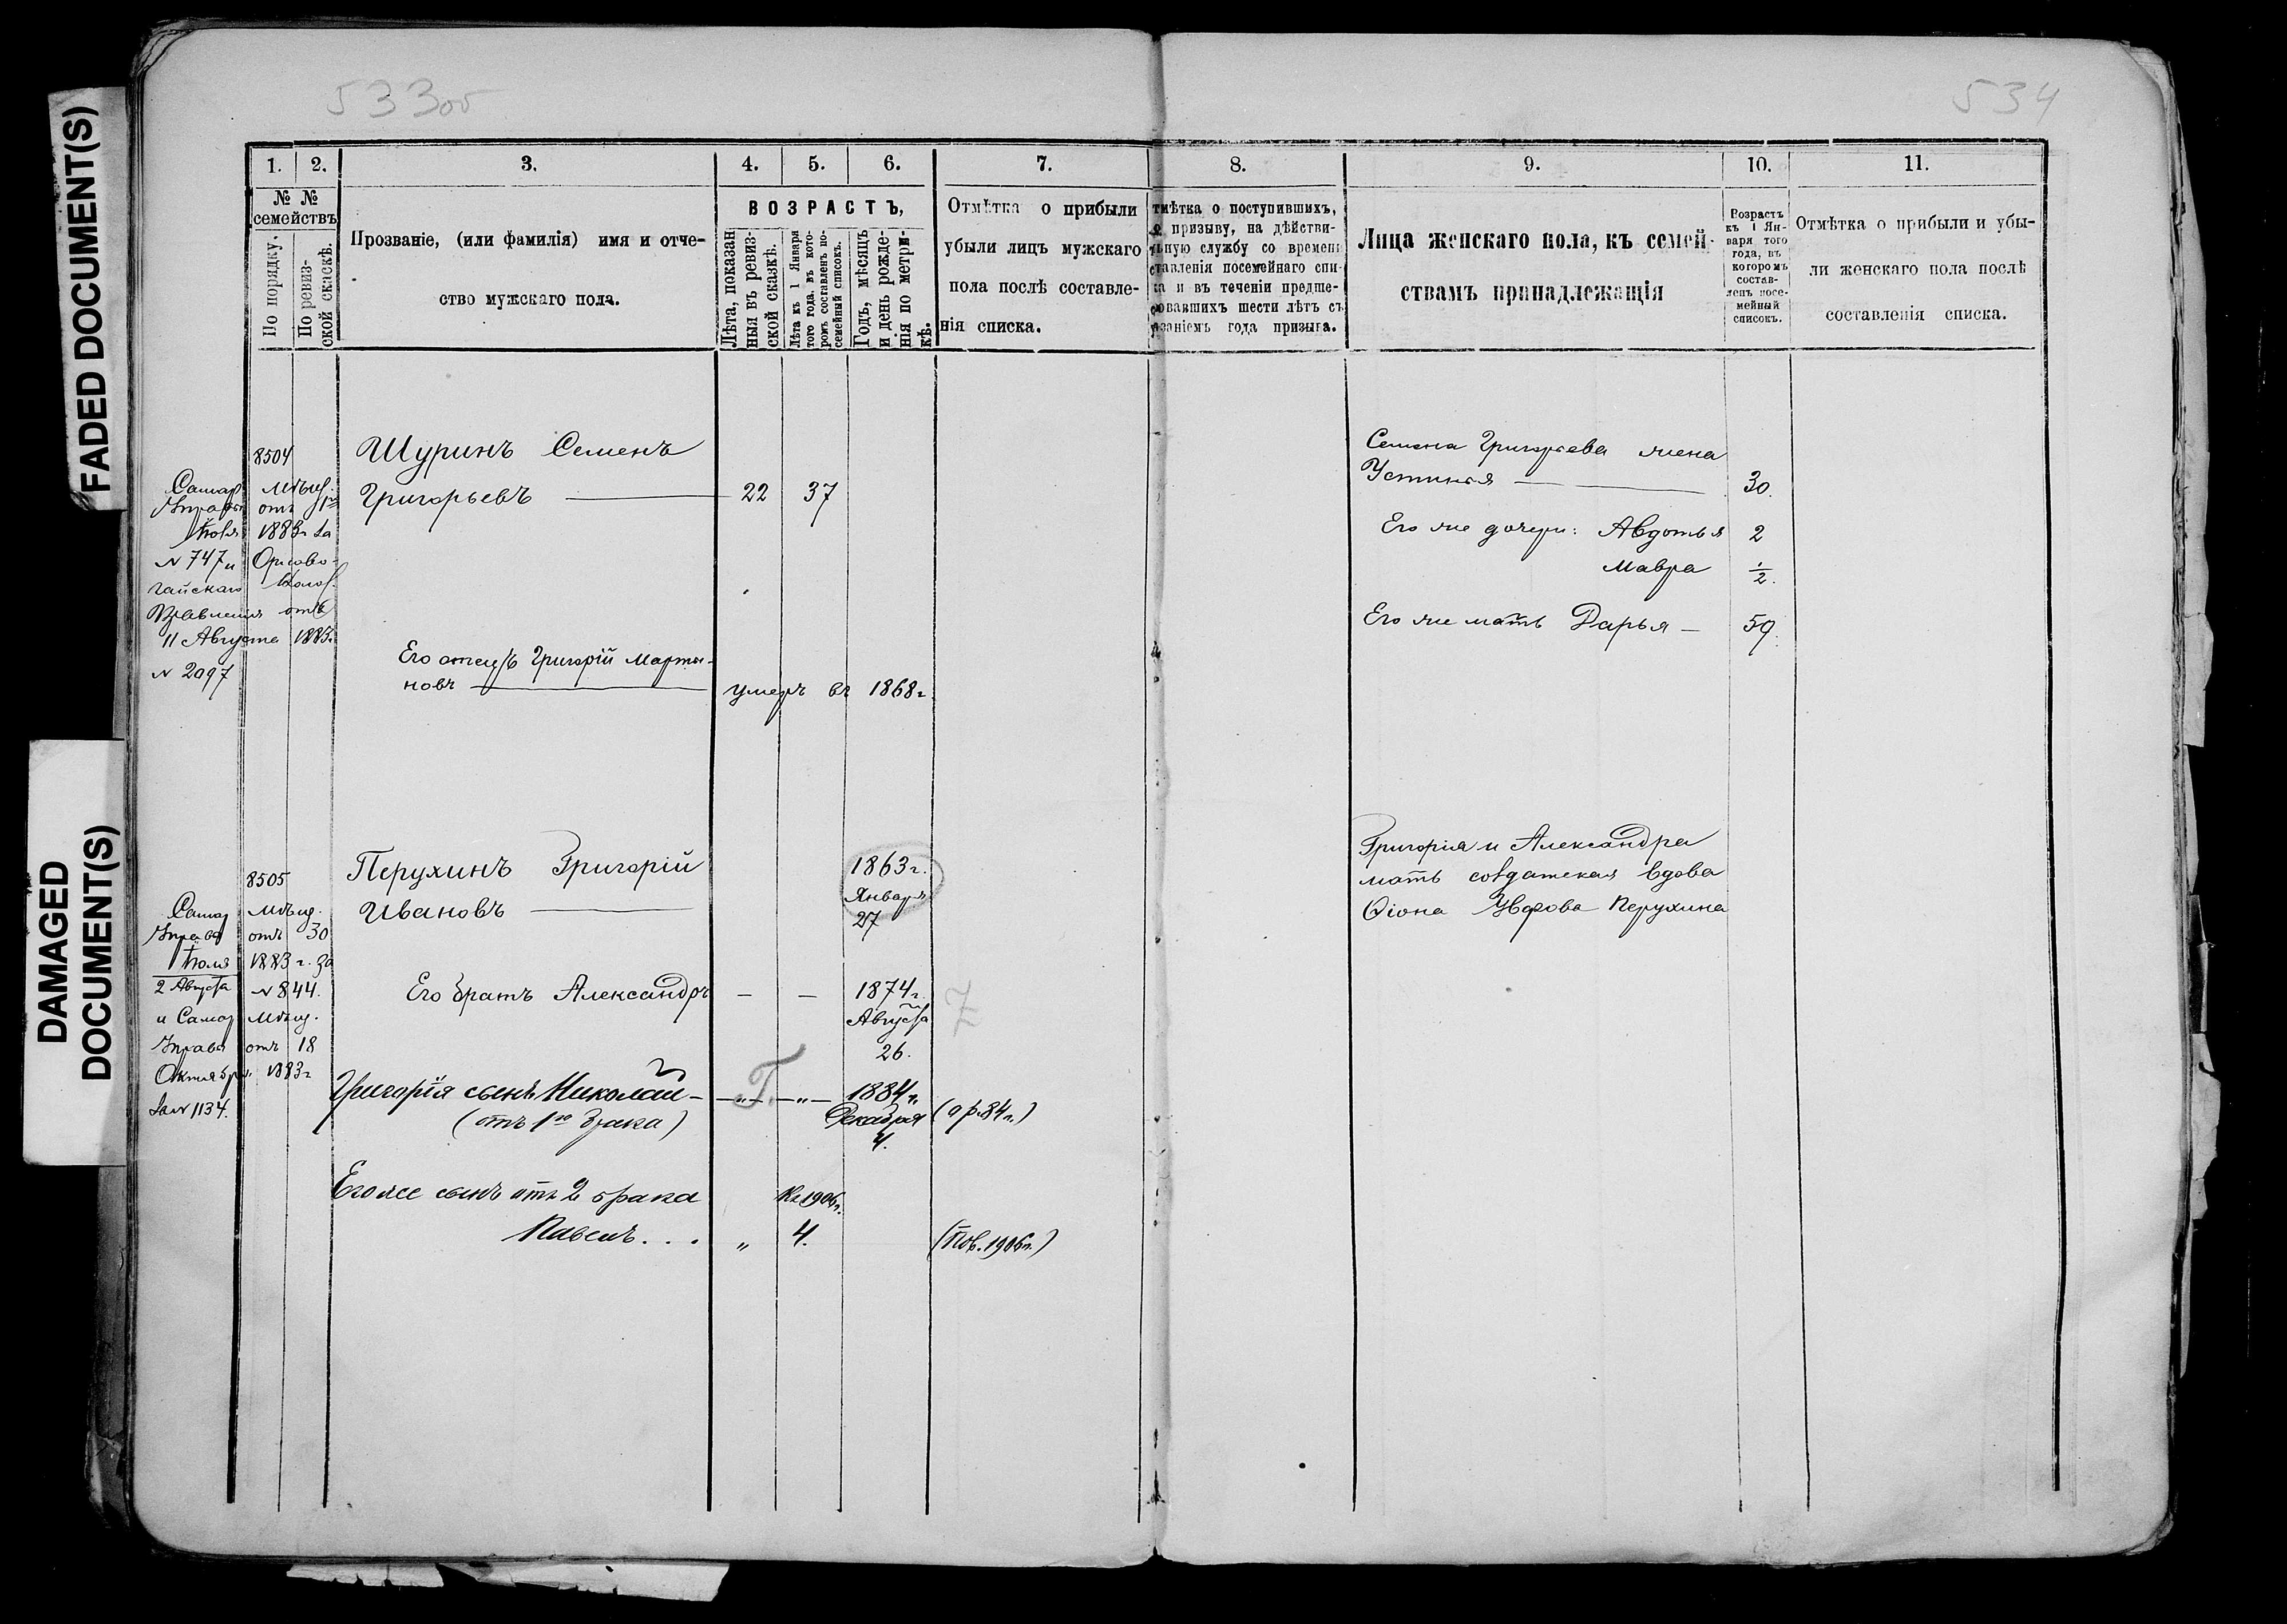 FADED DOCUMENT(S)
DAMAGED
DOCUMENT(S)
533об
534
1. 2. 3. 4. 5. 6. 7. 8. 9. 10. 11.
№ №
семействъ
По порядку.
По ревиз-
ской сказкѣ.
Прозваніе, (или фамилія) имя и отче-
ство мужскаго пола.
ВОЗРАСТЪ,
Лѣта, показан
ныя въ ревиз-
ской сказкѣ.
Лѣта къ 1 Января
того года, въ кото-
ромъ составленъ по-
семейный списокъ.
Годъ, мѣсяцъ
и день рожде-
нія по метри-
кѣ.
Отмѣтка о прибыли
убыли лицъ мужскаго
пола послѣ составле-
нія списка.
тмѣтка о поступившихъ,
о призыву, на дѣйстви-
льную службу со времени
ставленія посемейнаго спи-
ка и въ теченіи предше-
вовавшихъ шести лѣтъ съ
азаніемъ года призыва.
Лица женскаго пола, къ семей-
ствамъ принадлежащія
Возрастъ
къ 1 Ян-
варя того
года, въ
которомъ
состав-
ленъ посе-
мейный
списокъ.
Отмѣтка о прибыли и убы-
ли женскаго пола послѣ
составленія списка.
8504
Самар. мѣщ.
Управы отъ
Іюля 1883 г. за
№ 747 и Орлово-
гайскаго Волос.
Правленія отъ
11 Августа 1883.
№ 2097
Шуринъ Семенъ
Григорьевъ 22 37
Его отецъ Григорій Марты-
новъ умеръ въ 1868 г.
Семена Григорьева жена
Устинья 30.
Его же дочери: Авдотья 2
Мавра 1/2.
Его же мать Дарья 59.
8505
Самар мѣщ.
Управы отъ 30
Іюля 1883 г. за
2 Августа № 844.
и Самар мѣщ.
Управы отъ 18
Октября 1883 г
за № 1134.
Перухинъ Григорій 1863 г.
Ивановъ Января
27
Его братъ Александръ — — 1874 г.
Августа
26.
Григорія сынъ Николай — „ — „ — 1884 г.
(отъ 1го брака) Декабря (а р. 84 г.)
4.
Его же сынъ отъ 2 брака Къ 1906 г.
Павелъ . . . „ 4. (Пов. 1906 г.)
Григорія и Александра
мать солдатская вдова
Перухина